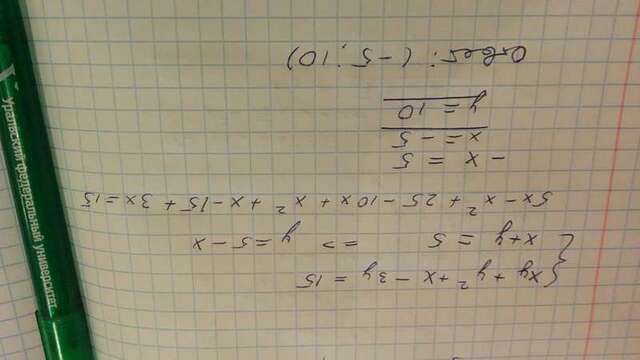 { xy + y² + x - 3y = 15
x+y = 5 => y = 5 - x
5x - x² + 25 - 10x + x² + x - 15 + 3x = 15
- x = 5
x = - 5
y = 10
Ответ: (-5; 10)
Уральский федеральный университет